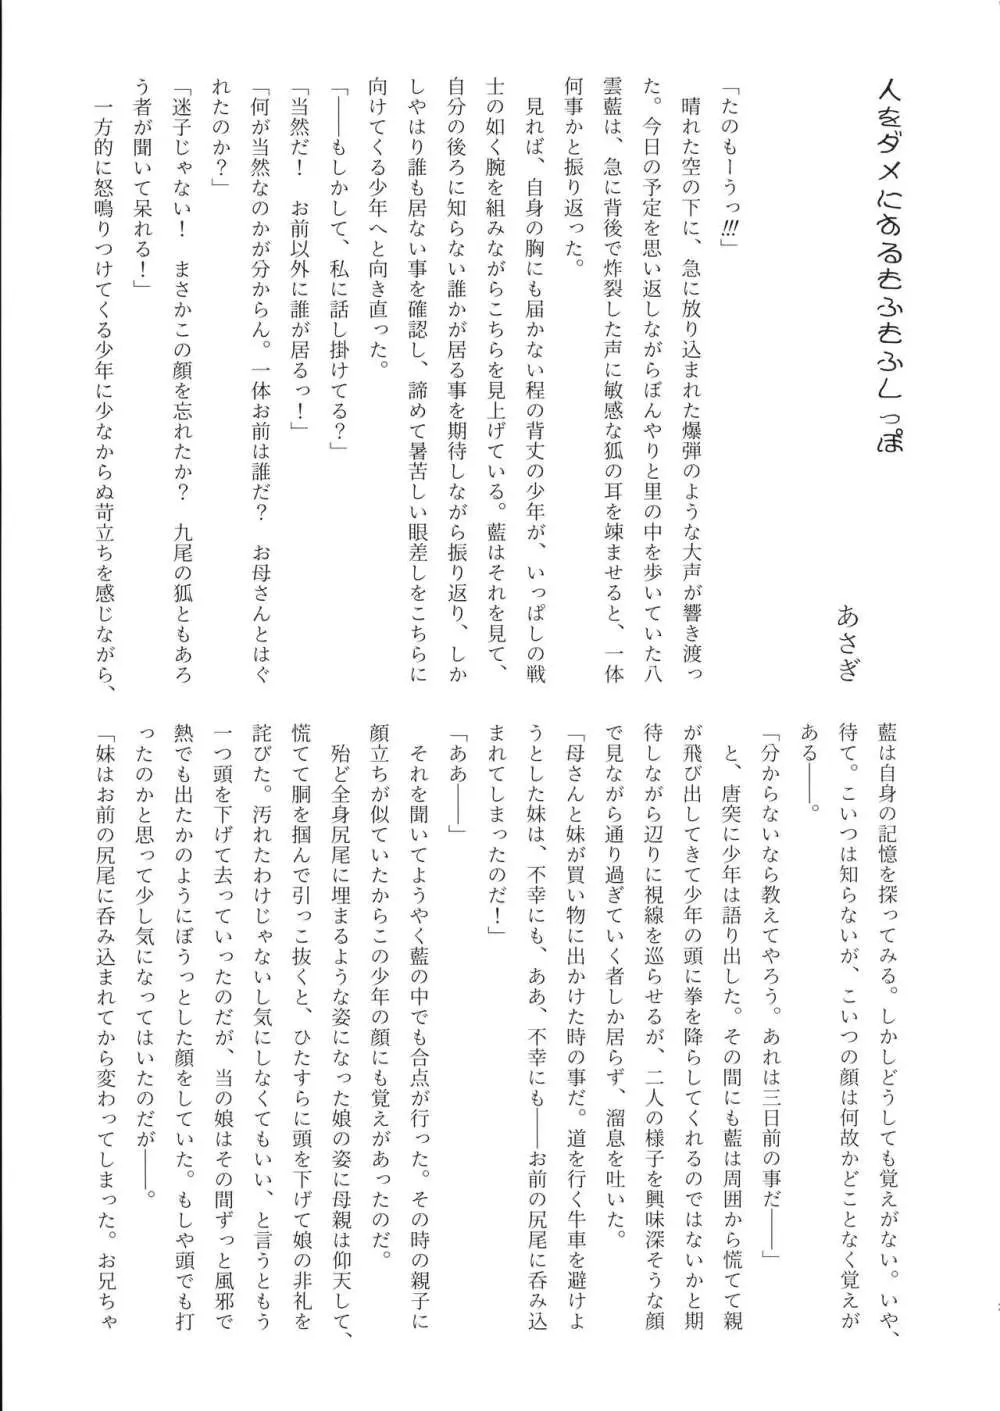 人をダメにするもふもふしっぽ
あさぎ
「たのもーうっ!!!」
　晴れた空の下に、急に放り込まれた爆弾のような大声が響き渡っ
た。今日の予定を思い返しながらぼんやりと里の中を歩いていた八
雲藍は、急に背後で炸裂した声に敏感な狐の耳を竦ませると、一体
何事かと振り返った。
　見れば、自身の胸にも届かない程の背丈の少年が、いっぱしの戦
士の如く腕を組みながらこちらを見上げている。藍はそれを見て、
自分の後ろに知らない誰かが居る事を期待しながら振り返り、しか
しやはり誰も居ない事を確認し、諦めて暑苦しい眼差しをこちらに
向けてくる少年へと向き直った。
「――もしかして、私に話し掛けてる？」
「当然だ！　お前以外に誰が居るっ！」
「何が当然なのかが分からん。一体お前は誰だ？　お母さんとはぐ
れたのか？」
「迷子じゃない！　まさかこの顔を忘れたか？　九尾の狐ともあろ
う者が聞いて呆れる！」
　一方的に怒鳴りつけてくる少年に少なからぬ苛立ちを感じながら、
藍は自身の記憶を探ってみる。しかしどうしても覚えがない。いや、
待て。こいつは知らないが、こいつの顔は何故かどことなく覚えが
ある――。
「分からないなら教えてやろう。あれは三日前の事だ――」
　と、唐突に少年は語り出した。その間にも藍は周囲から慌てて親
が飛び出してきて少年の頭に拳を降らしてくれるのではないかと期
待しながら辺りに視線を巡らせるが、二人の様子を興味深そうな顔
で見ながら通り過ぎていく者しか居らず、溜息を吐いた。
「母さんと妹が買い物に出かけた時の事だ。道を行く牛車を避けよ
うとした妹は、不幸にも、ああ、不幸にも――お前の尻尾に呑み込
まれてしまったのだ！」
「ああ――」
　それを聞いてようやく藍の中でも合点が行った。その時の親子に
顔立ちが似ていたからこの少年の顔にも覚えがあったのだ。
　殆ど全身尻尾に埋まるような姿になった娘の姿に母親は仰天して、
慌てて胴を掴んで引っこ抜くと、ひたすらに頭を下げて娘の非礼を
詫びた。汚れたわけじゃないし気にしなくてもいい、と言うともう
一つ頭を下げて去っていったのだが、当の娘はその間ずっと風邪で
熱でも出たかのようにぼうっとした顔をしていた。もしや頭でも打
ったのかと思って少し気になってはいたのだが――。
「妹はお前の尻尾に呑み込まれてから変わってしまった。お兄ちゃ